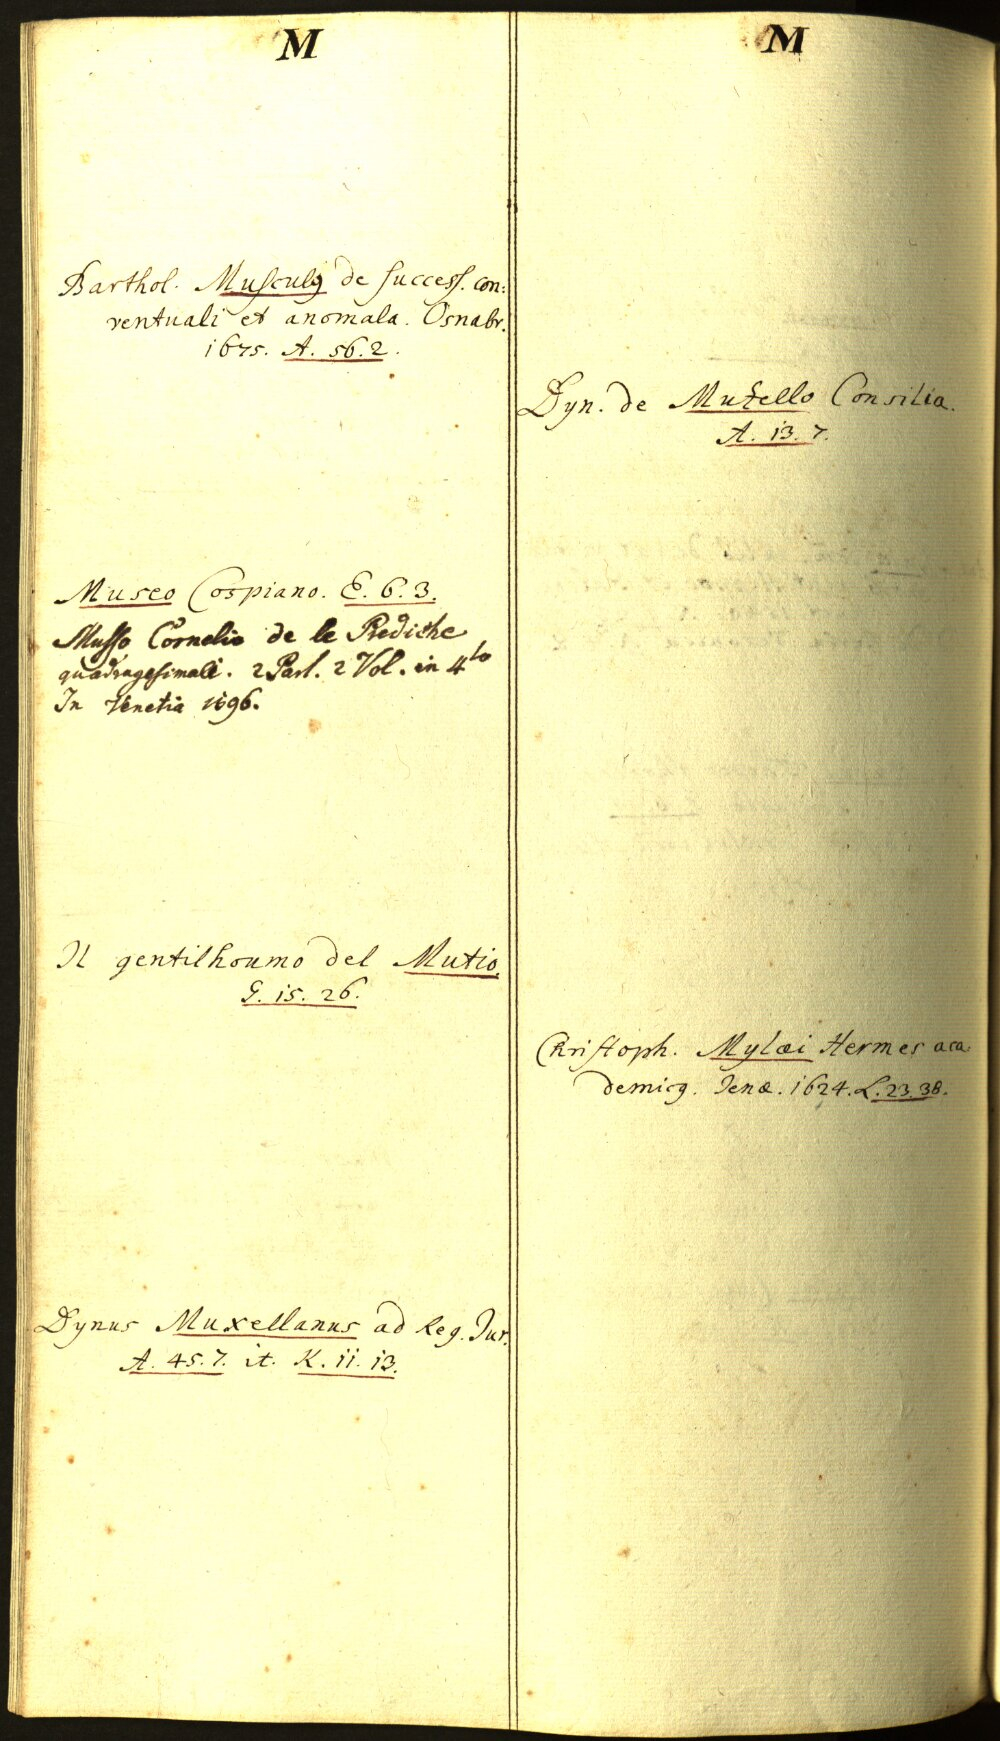 M
Barthol. Musculꝯ de success. con:
ventuali et anomala. Osnabr.
1675. A. 56. 2.
Museo Cospiano. E. 6. 3.
Musso Cornelio de le Prediche
quadragesimali. 2 Part. 2 Vol. in 4to
In Venetia 1696.
Il gentilhoumo del Mutio.
G. 15. 26.
Dynus Muxellanus ad Reg. Jur.
A. 45. 7. it. K. 11. 13.
M
Dyn. de Muxello Consilia.
A. 13. 7.
Christoph. Mylæi Hermes aca
demicꝯ. Jenæ. 1624. L. 23. 38.